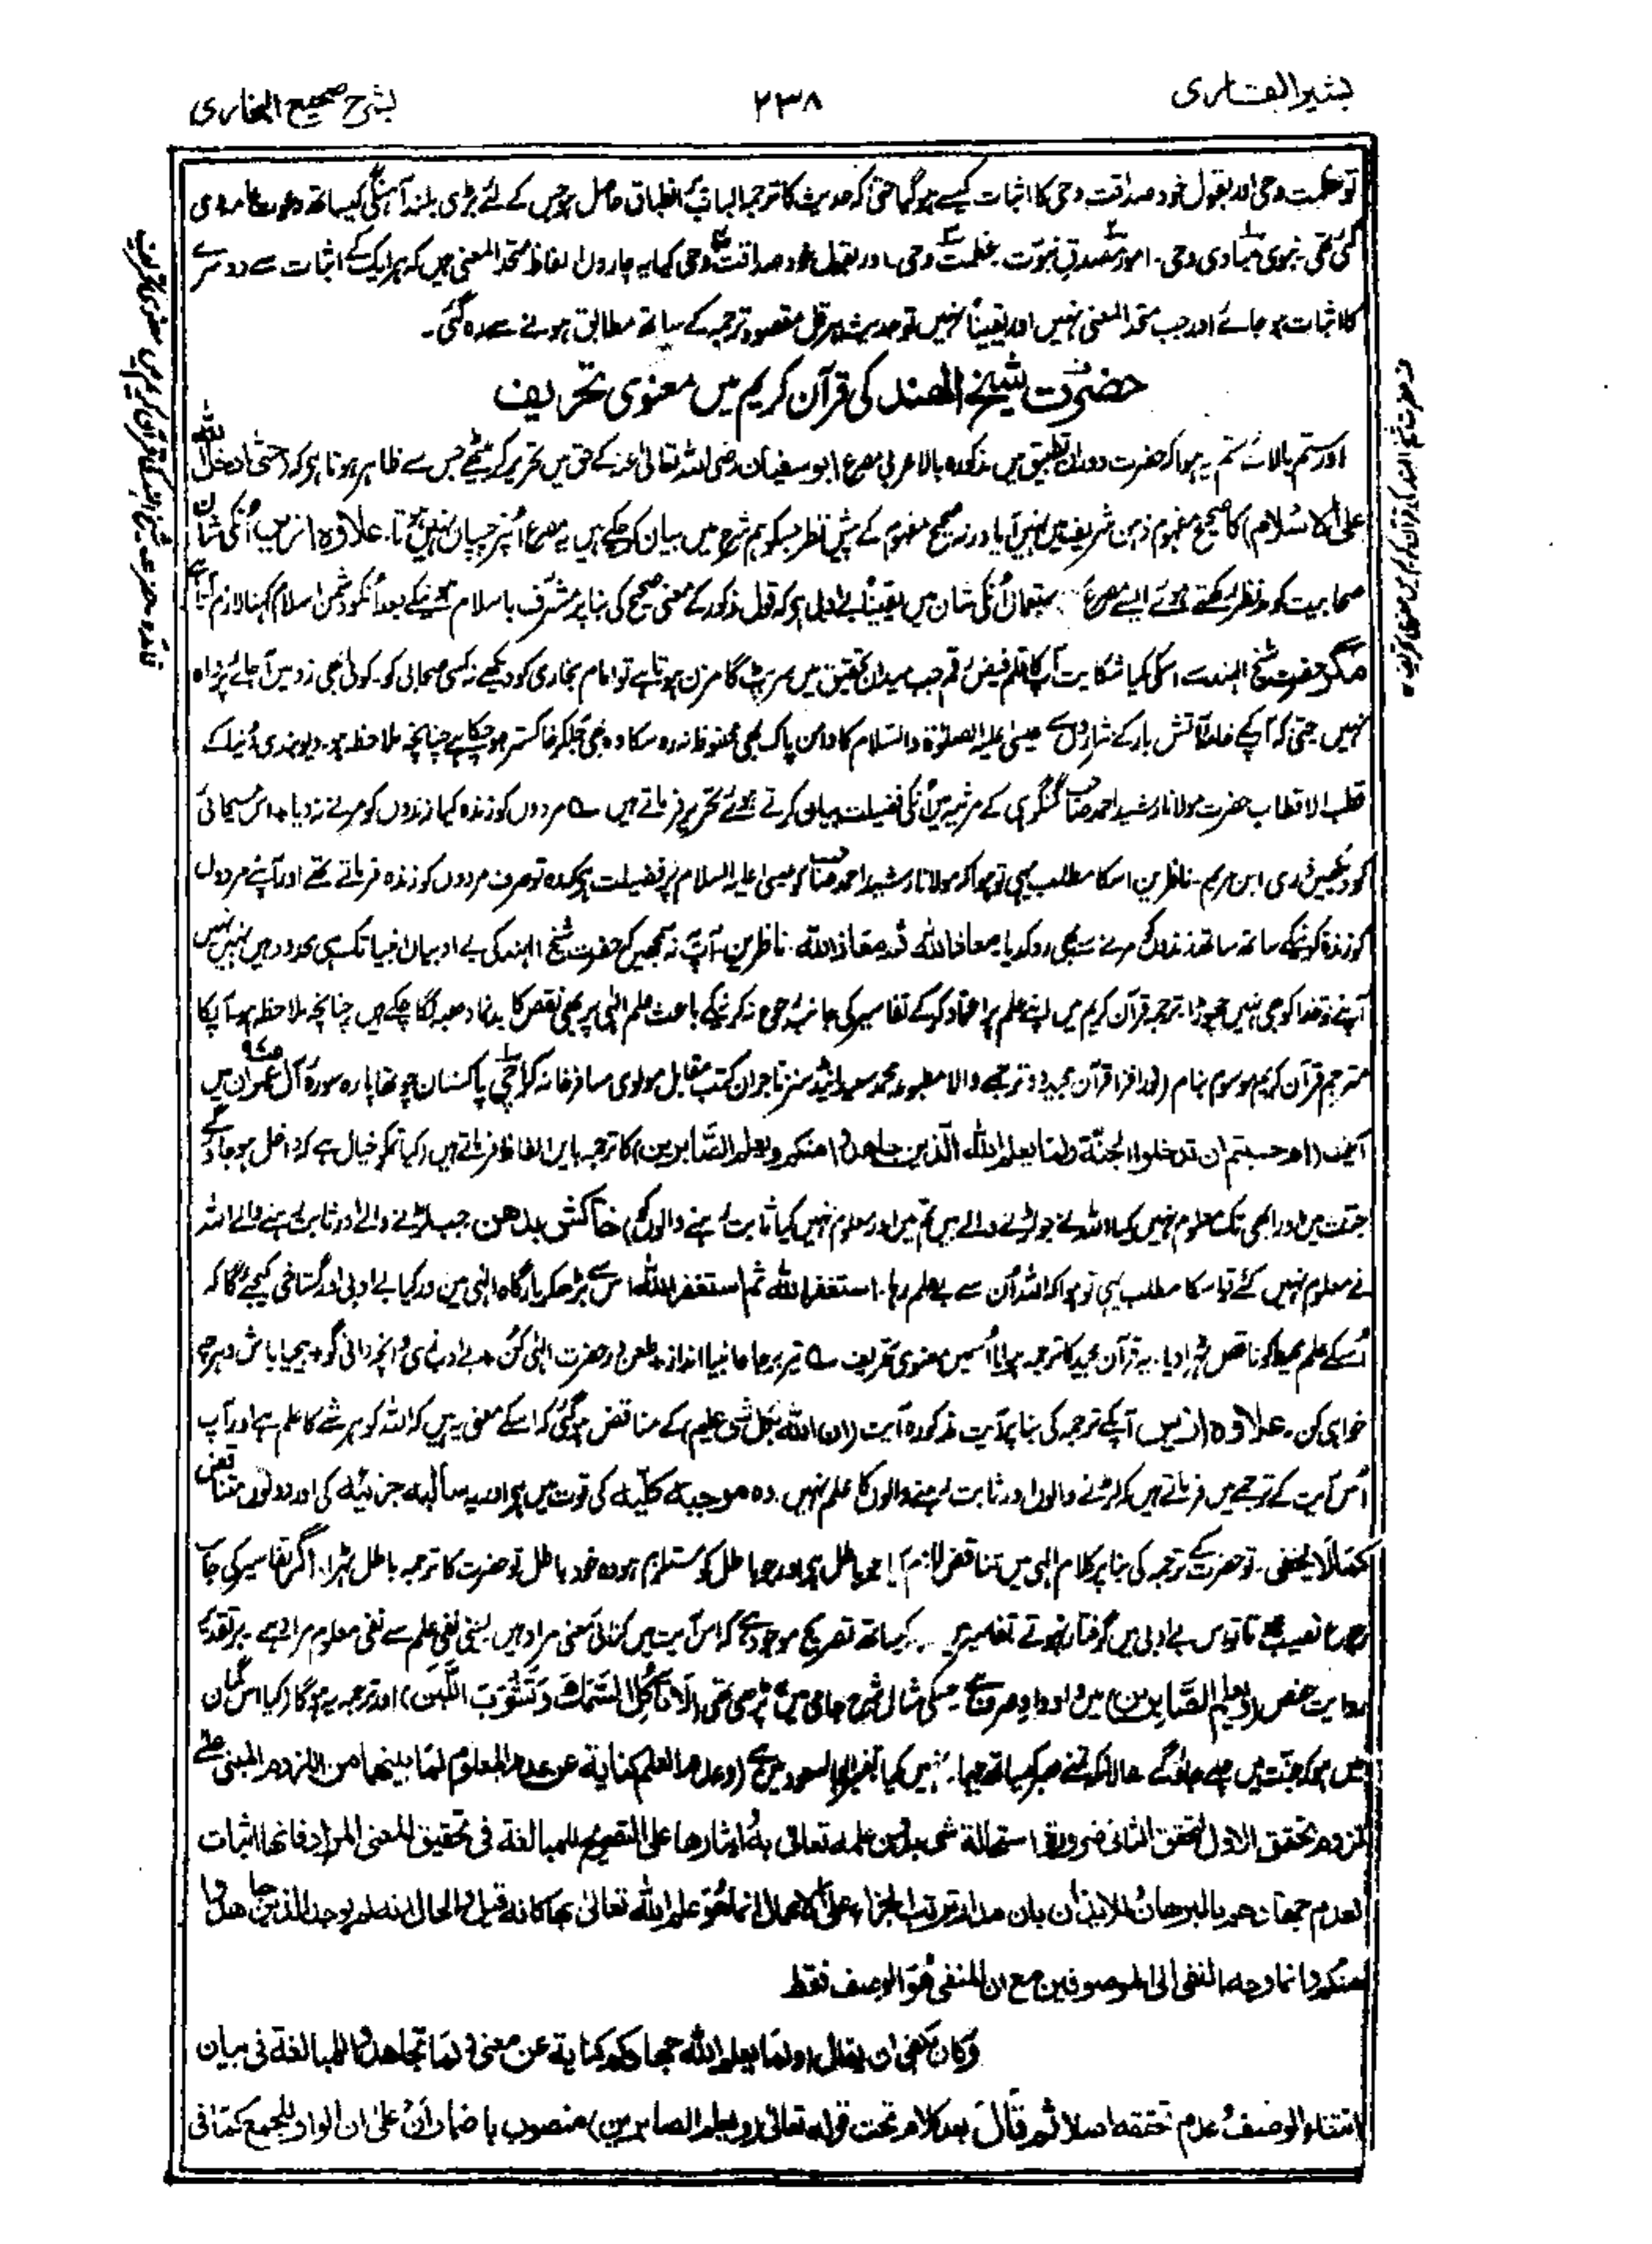 بشیر القاری
۲۳۸
بشرح صحیح البخاری
تو عظمت وحی اور بقول خود صداقت وحی کا اثبات کیسے ہو گیا حتیٰ کہ حدیث کا ترجمۃ الباب سے انطباق حاصل ہو جس کے لئے بڑی بلند آہنگی کیساتھ دعوت عام دی
گئی تھی۔ نبوی مبادی وحی۔ امور مصدق نبوت۔ عظمت وحی۔ اور بقول خود صداقت وحی کیا یہ چاروں الفاظ متحد المعنی ہیں کہ ہر ایک کے اثبات سے دوسرے
کا اثبات ہو جائے اور جب متحد المعنی نہیں اور یقیناً نہیں تو حدیث ہرقل مقصود ترجمہ کے ساتھ مطابق ہونے سے رہ گئی۔
حضرت شیخ الہند کی قرآن کریم میں معنوی تحریف
اور ستم بالائے ستم یہ ہوا کہ حضرت دوران تطبیق میں مذکورہ بالا عربی مصرع ابو سفیان رضی اللہ تعالیٰ عنہ کے حق میں تحریر کر بیٹھے جس سے ظاہر ہوتا ہے کہ (حتیٰ ادخل اللہ
علی الاسلام) کا صحیح مفہوم ذہن شریف میں نہیں آیا ورنہ صحیح مفہوم کے پیش نظر جسکو ہم شرح میں بیان کر چکے ہیں یہ مصرع انپر چسپاں نہیں ہوتا۔ علاوہ ازیں انکی شان
صحابیت کو مد نظر رکھتے ہوئے ایسے مصرع استعمال انکی شان میں یقیناً بے ادبی ہے کہ قول مذکور کے معنی صحیح کی بنا پر مشرف باسلام ہونیکے بعد انکو دشمن اسلام کہنا لازم آتا ہے
مگر حضرت شیخ الہند سے اسکی کیا شکایت آپکا قلم فیض رقم جب میدان تحقیق میں سرپٹ گامزن ہوتا ہے تو امام بخاری کو دیکھے نہ کسی صحابی کو۔ کوئی بھی زد میں آجائے پرواہ
نہیں حتیٰ کہ آپکے خامۂ آتش بار کے شراروں سے عیسیٰ علیہ الصلوٰۃ والسلام کا دامن پاک بھی محفوظ نہ رہ سکا وہ بھی جلکر خاکستر ہو چکا ہے چنانچہ ملاحظہ ہو دیوبندی دنیا کے
قطب الاقطاب حضرت مولانا رشید احمد صاحب گنگوہی کے مرثیہ میں انکی فضیلت بیان کرتے ہوئے تحریر فرماتے ہیں ؎ مردوں کو زندہ کیا زندوں کو مرنے نہ دیا + اس مسیحائی
کو دیکھیں ذری ابن مریم۔ ناظرین اسکا مطلب یہی تو ہوا کہ مولانا رشید احمد صاحب کو عیسیٰ علیہ السلام پر فضیلت ہے کہ وہ تو صرف مردوں کو زندہ فرماتے تھے اور آپنے مردوں
کو زندہ کرنیکے ساتھ ساتھ زندوں کو مرنے سے بھی روکدیا۔ معاذ اللہ ثم معاذ اللہ۔ ناظرین۔ آپ نہ سمجھیں کہ حضرت شیخ الہند کی بے ادبیاں انبیا تک ہی محدود ہیں نہیں نہیں
آپنے تو خدا کو بھی نہیں چھوڑا۔ ترجمہ قرآن کریم میں اپنے علم پر اعتماد کر کے تفاسیر کی جانب رجوع نہ کرنیکے باعث علم الٰہی پر بھی نقص کا بدنما دھبہ لگا چکے ہیں چنانچہ ملاحظہ ہو آپکا
مترجم قرآن کریم موسوم بنام (نور افزا قرآن مجید دو ترجمے والا مطبوعہ محمد سعید اینڈ سنز تاجران کتب مقابل مولوی مسافر خانہ کراچی پاکستان چوتھا پارہ سورۂ آل عمران میں
آیت (ام حسبتم ان تدخلوا الجنۃ ولما یعلم اللہ الذین جاھدوا منکم ویعلم الصّابرین) کا ترجمہ بایں الفاظ فرماتے ہیں (کیا تمکو خیال ہے کہ داخل ہو جاؤ گے
جنت میں اور ابھی تک معلوم نہیں کیا اللہ نے جو لڑنے والے ہیں تم میں اور معلوم نہیں کیا ثابت رہنے والوں کو) خاکش بدھن جب لڑنے والے اور ثابت رہنے والے اللہ
نے معلوم نہیں کئے تو اسکا مطلب یہی تو ہوا کہ اللہ ان سے بے علم رہا۔ استغفر اللہ ثم استغفر اللہ اس سے بڑھکر بارگاہ الٰہی میں اور کیا بے ادبی اور گستاخی کیجئے گا کہ
اسکے علم محیط کو ناقص ٹھہرا دیا۔ یہ قرآن مجید کا ترجمہ ہوا یا اسمیں معنوی تحریف ؎ تیر بر جاہ انبیا انداز + طعن در حضرت الٰہی کن + بے ادب زی و آنچہ دانی گو + بیحیا باش و ہرچہ
خواہی کن۔ علاوہ ازیں آپکے ترجمہ کی بنا پر آیت مذکورہ آیت (ان اللہ بکل شیٔ علیم) کے مناقض ہو گئی کہ اسکے معنی یہ ہیں کہ اللہ کو ہر شے کا علم ہے اور آپ
اس آیت کے ترجمے میں فرماتے ہیں کہ لڑنے والوں اور ثابت رہنے والوں کا علم نہیں۔ وہ موجبہ کلیہ کی قوت میں ہے اور یہ سالبہ جزئیہ کی اور دونوں متناقض
کمالا یخفیٰ۔ تو حضرت کے ترجمہ کی بنا پر کلام الٰہی میں تناقض لازم آیا جو باطل ہے اور جو باطل کو مستلزم ہو وہ خود باطل تو حضرت کا ترجمہ باطل ٹھہرا۔ اگر تفاسیر کی جانب
رجوع نصیب ہوتا تو اس بے ادبی میں گرفتار نہوتے تفاسیر کیساتھ تصریح موجود ہے کہ اس آیت میں کنائی معنی مراد ہیں یعنی نفی علم سے نفی معلوم مراد ہے۔ بر تقدیر
روایت حفص (ویعلم الصّابرین) میں واو واو صرف ہے جسکی مثال شرح جامی میں پڑھی تھی (لا تأکل السّمک وتشرب اللّبن) اور ترجمہ یہ ہوگا (کیا اس گمان
میں ہو کہ جنت میں چلے جاؤ گے حالانکہ تمنے صبر کیساتھ جہاد نہیں کیا) تفسیر ابو السعود میں ہے (وعدم العلم کنایة عن عدم المعلوم لما بینھما من اللزوم المبنی علی
لزوم تحقق الاول لتحقق الثانی ضرورة استحالة شیٔ بدون علمه تعالیٰ به وایثارھا علی التصریح للمبالغة فی تحقیق المعنی المراد فانھا اثبات
لعدم جھادھم بالبرھان وللایذان بان مدار ترتب الجزاء علی الاعمال انما ھو علم اللہ تعالیٰ بھا کانه قیل والحال انه لم یوجد الذین جاھدوا
منکم وانما وجه النفی الی الموصوفین مع ان المنفی ھو الوصف فقط
وکان یکفی ان یقال ولما یعلم اللہ جھادکم کنایة عن معنی ولما تجاھدوا للمبالغة فی بیان
انتفاء الوصف وعدم تحققه اصلا ثم قال بعد کلام تحت قوله تعالیٰ (ویعلم الصابرین) منصوب باضمار ان علی ان الواو للجمع کما فی